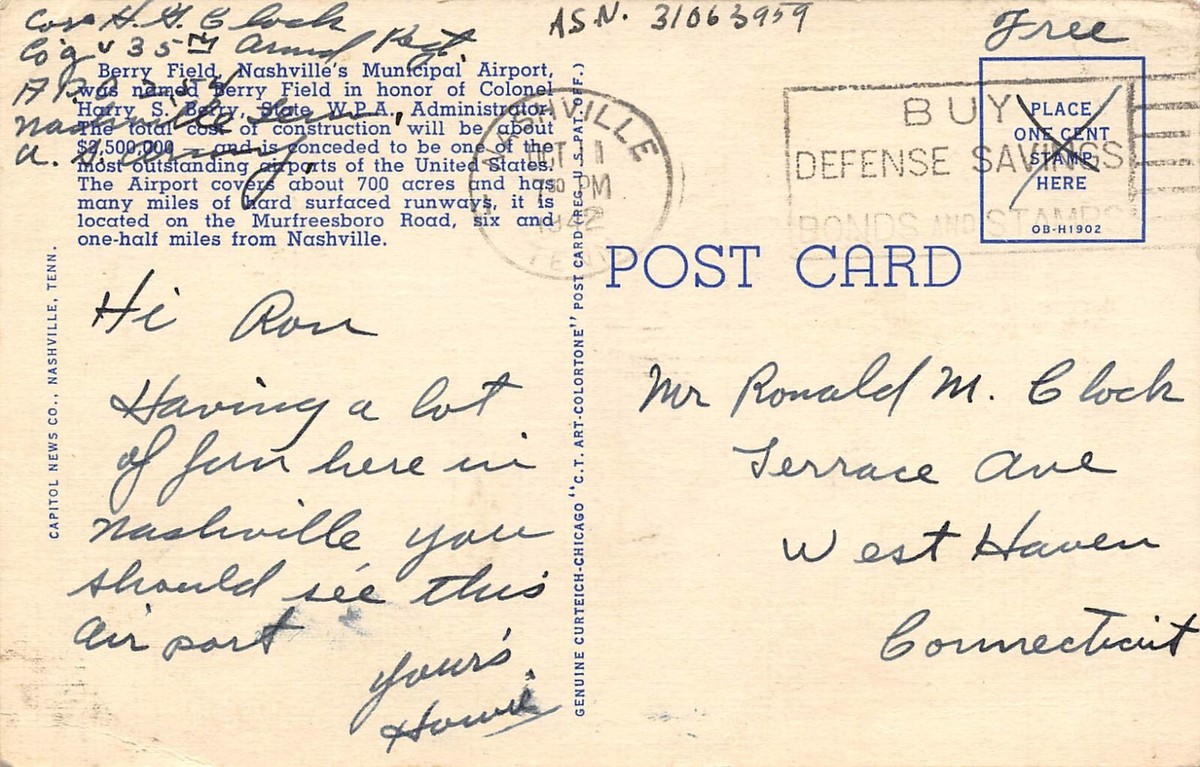 Corp H. G. Clock
Co "g" 35th Armd Regt.
A.P.O. 254
Nashville Tenn.
U. S. Army
A.S.N. 31063959
Free
Berry Field, Nashville's Municipal Airport,
was named Berry Field in honor of Colonel
Harry S. Berry, State W.P.A. Administrator.
The total cost of construction will be about
$2,500,000 and is conceded to be one of the
most outstanding airports of the United States.
The Airport covers about 700 acres and has
many miles of hard surfaced runways, it is
located on the Murfreesboro Road, six and
one-half miles from Nashville.
NASHVILLE
OCT 1
7 30 PM
1942
TENN.
BUY
DEFENSE SAVINGS
BONDS AND STAMPS
PLACE
ONE CENT
STAMP
HERE
OB-H1902
POST CARD
CAPITOL NEWS CO., NASHVILLE, TENN.
GENUINE CURTEICH-CHICAGO "C.T. ART-COLORTONE" POST CARD (REG. U.S. PAT. OFF.)
Hi Ron
Having a lot
of fun here in
Nashville you
should see this
air port
your's
Howie
Mr Ronald M. Clock
Terrace Ave
West Haven
Connecticut